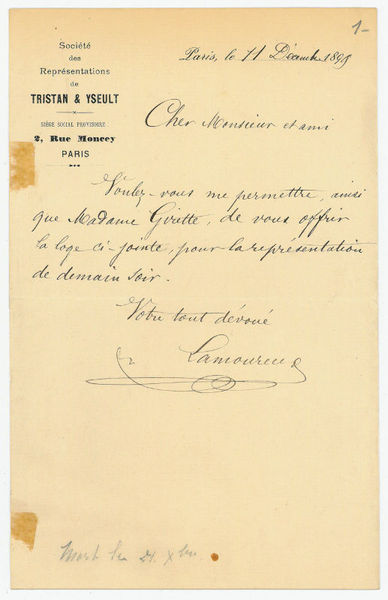 1-
Société
des
Représentations
de
TRISTAN & YSEULT
SIÈGE SOCIAL PROVISOIRE
2, Rue Moncey
PARIS
Paris, le 11 Décembre 189
Cher Monsieur et ami
Voulez-vous me permettre, ainsi
que Madame Girette, de vous offrir
la loge ci-jointe, pour la représentation
de demain soir.
Votre tout dévoué
Lamoureux
Mort le 21. Xbre.